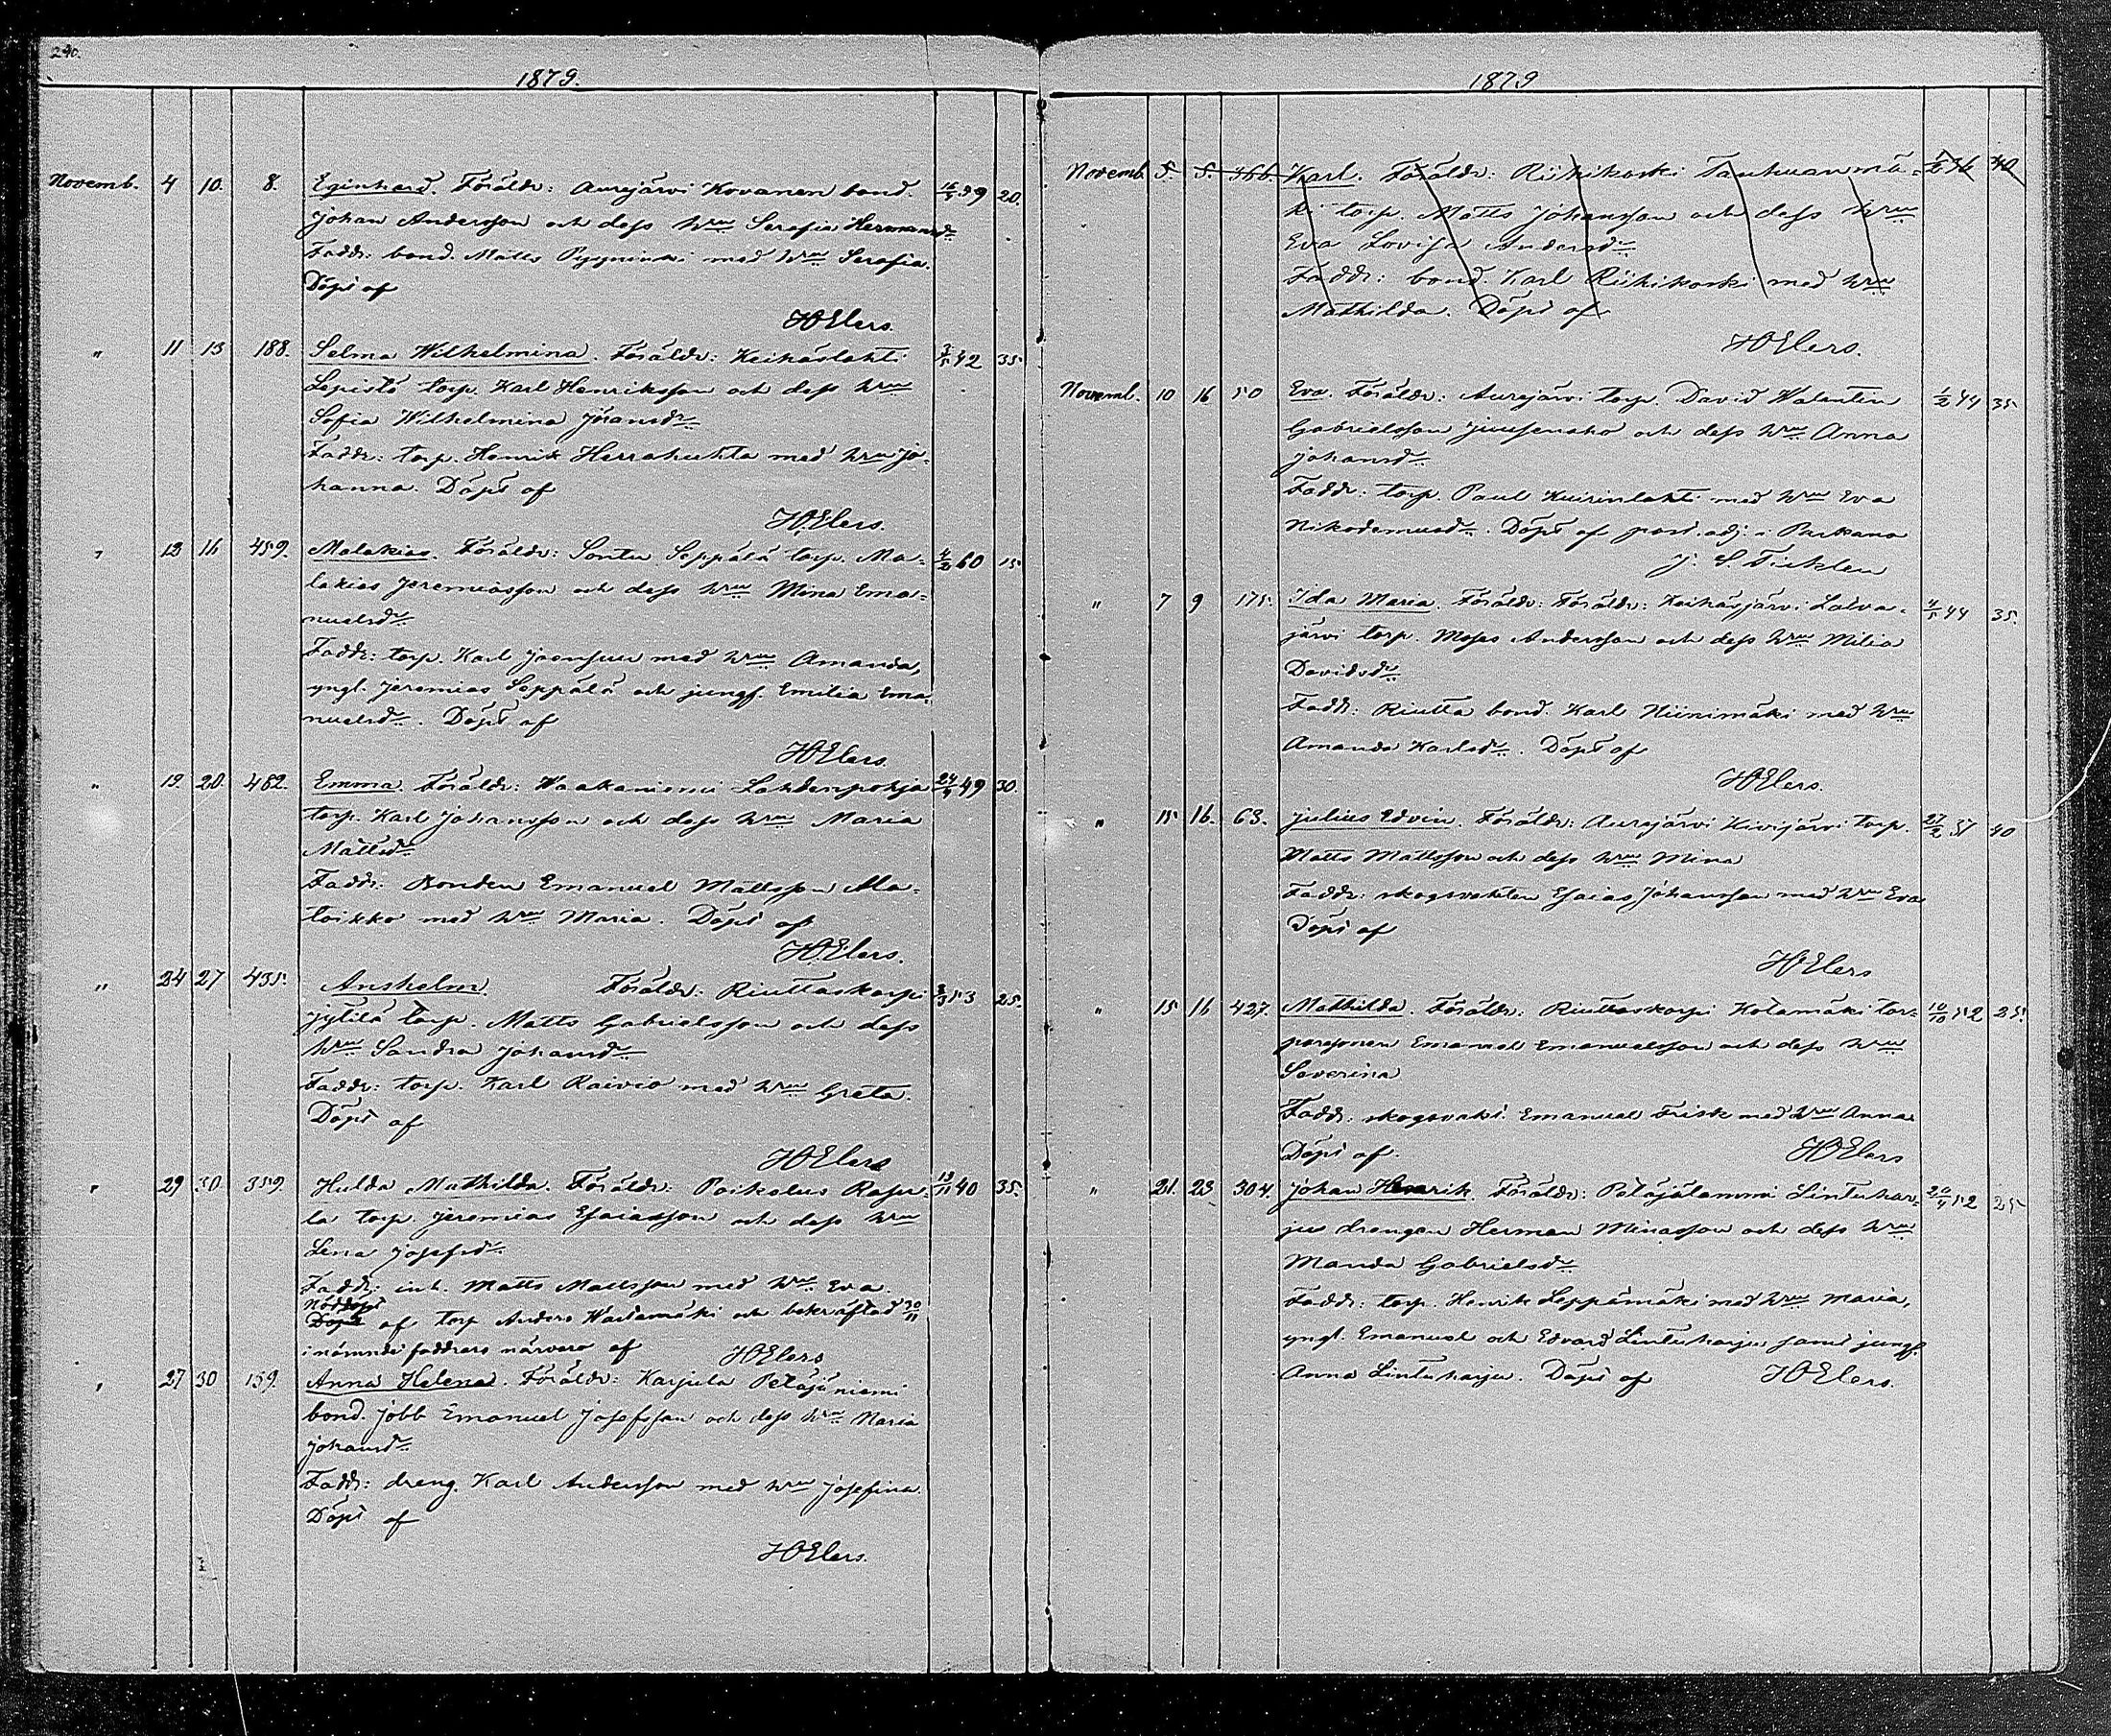 240.
1879.
Novemb. 4 10. 8. Eginhard. Föräldr: Aurejärvi Kovanen bond. 16/5 59 20.
Johan Andersson och dess hru Serafia Hermansdr
Faddr: bond. Matts Pyynini med hru Serafia.
Döpt af
HOElers.
" 11 13 188. Selma Wilhelmina. Föräldr: Keihäslahti 3/5 42 35
Lepistö torp. Karl Henriksson och dess hru
Sofia Wilhelmina Göransdr
Faddr: torp. Henrik Herrahuhta med hru Jo-
hanna. Döpt af
HOElers.
" 13 16 459. Malakias. Föräldr: Sontu Seppälä torp. Ma- 4/2 60 15
lakias Jeremiasson och dess hru Mina Ema-
nuelsdr
Faddr: torp. Karl Joensuu med hru Amanda,
yngl. Jeremias Seppälä och jungf. Emilia Ema-
nuelsdr. Döpt af
HOElers
" 19. 20. 482. Emma. Föräldr: Waakaniemi Lahdenpohja 24/9 49 30.
torp. Karl Johansson och dess hru Maria
Mattsdr
Faddr: Bonden Emanuel Mattsson Ma-
toikko med hru Maria. Döpt af
HOElers.
" 24 27 435. Anshelm. Föräldr: Riuttaskorpi 3/3 53 25.
Jytilä torp. Matts Gabrielsson och dess
hru Sandra Johansdr
Faddr: torp. Karl Raivio med hru Greta.
Döpt af
HOElers
" 29 30 359. Hulda Mathilda. Föräldr: Poikelus Rasu- 13/11 40 35.
la torp. Jeremias Esaiasson och dess hru
Lena Josefsdr
Faddr: inh. Matts Mattsson med hru Eva.
Nöddöpt
Döpt af torp Anders Wartamäki och bekräftad 30/11
i nämnde faddrars närvaro af HOElers
" 27 30 159. Anna Helena. Föräldr: Karjula Petäjäniemi
bond. Jobb Emanuel Josefsson och dess hru Maria
Johansdr
Faddr: dreng. Karl Andersson med hru Josefina.
Döpt af
HOElers.
1879
Novemb 5. 5. 366. Karl. Föräldr: Riihikoski Tauhuanmä- 1/2 36 40
ki torp. Matts Johansson och dess hru
Eva Lovisa Andersdr
Faddr: bond. Karl Riihikoski med hru
Mathilda. Döpt af
HOElers.
Novemb. 10 16 50 Eva. Föräldr: Aurejärvi torp. David Walentin 1/2 44 35
Gabrielsson Juusenaho och dess hru Anna
Johansdr
Faddr: torp. Paul Kuirinlahti med hru Eva
Nikodemusdr. Döpt af past. adj. i Parkano
J. S. Ticklen
" 7 9 175. Ida Maria. Föräldr: Föräldr: Keihäsjärvi Latva- 4/5 44 35.
järvi torp. Moses Andersson och dess hru Milia
Davidsdr
Faddr: Riutta bond. Karl Niinimäki med hru
Amanda Karlsdr. Döpt af
HOElers.
" 15 16. 63. Julius Edvin. Föräldr: Aurejärvi Kivijärvi torp. 27/2 37 40
Matts Mattsson och dess hru Mina
Faddr: skogsvakten Esaias Johansson med hru Eva
Döpt af
HOElers
" 15 16 427. Mathilda. Föräldr: Riuttaskorpi Kotamäki tor- 10/10 52 25.
parsonen Emanuel Emanuelsson och dess hru
Severina
Faddr: skogsvakt. Emanuel Frisk med hru Anna
Döpt af. HOElers
" 21. 23 304. Johan Henrik. Föräldr: Petäjälammi Lintuhar- 20/4 52 25
ju drengen Herman Minasson och dess hru
Manda Gabrielsdr
Faddr: torp. Henrik Leppämäki med hru Maria,
yngl. Emanuel och Edvard Lintuharju samt jungf.
Anna Lintuharju. Döpt af HOElers.